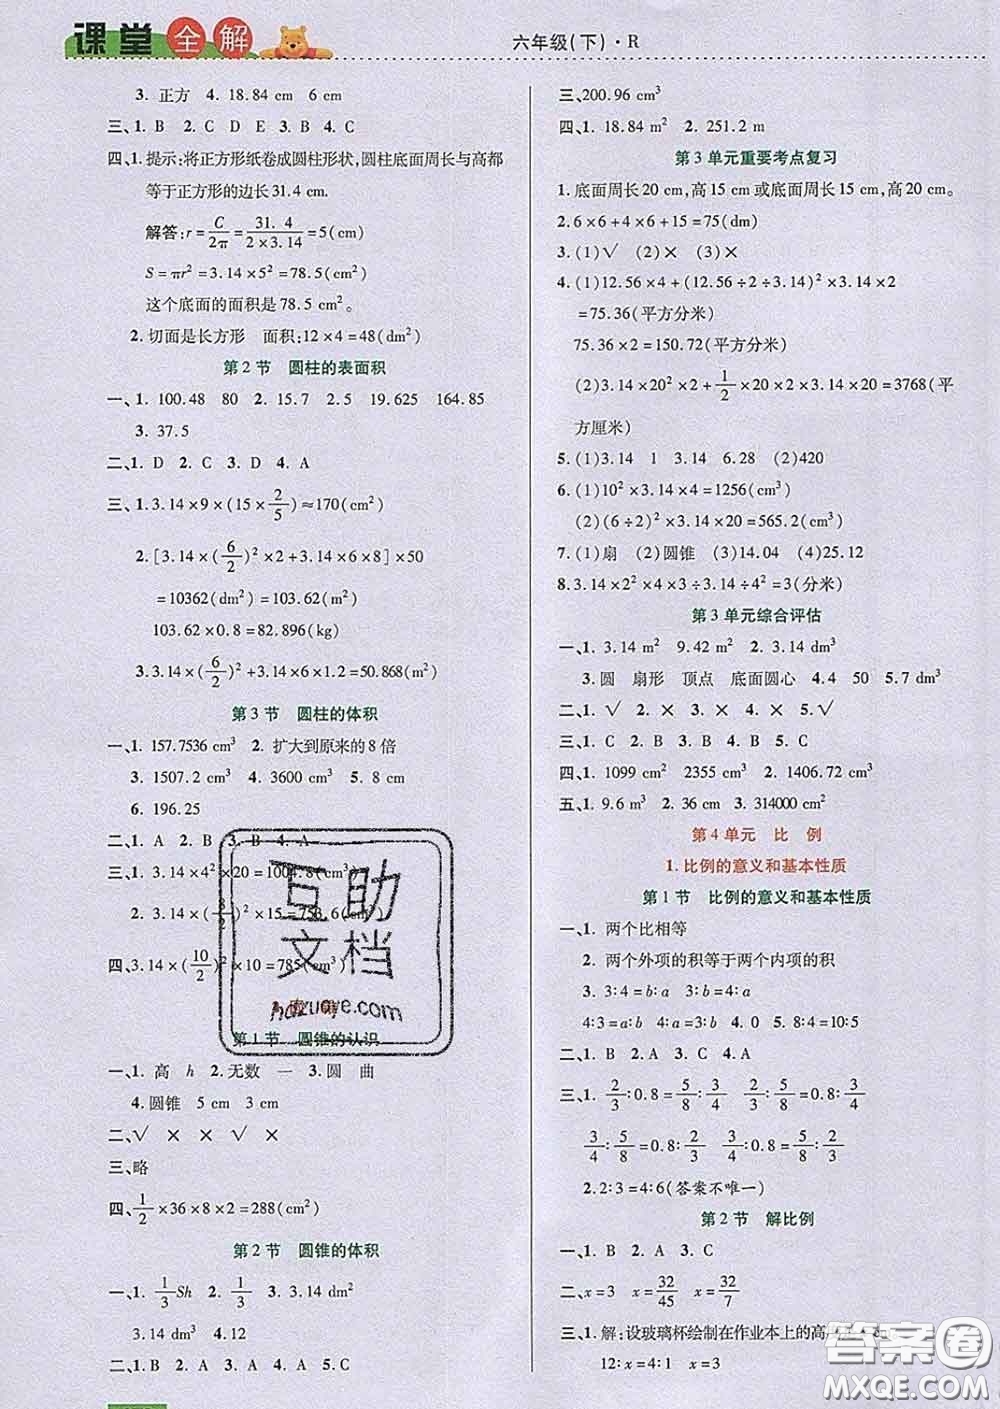 课堂全解
六年级(下)·R
3. 正方 4. 18.84 cm 6 cm
三、1. B 2. C D E 3. B 4. C
四、1. 提示:将正方形纸卷成圆柱形状,圆柱底面周长与高都
等于正方形的边长31.4 cm.
解答:r=C/2π=31.4/(2×3.14)=5(cm)
S=πr²=3.14×5²=78.5(cm²)
这个底面的面积是78.5 cm²。
2. 切面是长方形 面积:12×4=48(dm²)
第2节 圆柱的表面积
一、1. 100.48 80 2. 15.7 2.5 19.625 164.85
3. 37.5
二、1. D 2. C 3. D 4. A
三、1. 3.14×9×(15×2/5)≈170(cm²)
2. [3.14×(6/2)²×2+3.14×6×8]×50
=10362(dm²)=103.62(m²)
103.62×0.8=82.896(kg)
3. 3.14×(6/2)²+3.14×6×1.7=50.868(m²)
第3节 圆柱的体积
一、1. 157.7536 cm³ 2. 扩大到原来的8倍
3. 1507.2 cm³ 4. 3600 cm³ 5. 8 cm
6. 196.25
二、1. A 2. B 3. B 4. A
三、1. 3.14×4²×20=1004.8(cm³)
2. 3.14×(8/2)²×15=753.6(cm³)
四、3.14×(10/2)²×10=785(cm³)
第1节 圆锥的认识
一、1. 高 h 2. 无数 一 3. 圆 曲
4. 圆锥 5 cm 3 cm
二、√ × × √ ×
三、略
四、1/2×36×8×2=288(cm²)
第2节 圆锥的体积
一、1. 1/3Sh 2. 1/3 3. 3.14 dm²
3.14 dm³ 4. 12
二、1. B 2. A 3. B 4. A 5. C
三、200.96 cm³
四、1. 18.84 m² 2. 251.2 m
第3单元重要考点复习
1. 底面周长20 cm,高15 cm或底面周长15 cm,高20 cm。
2. 6×6+4×6+15=75(dm)
3. (1)√ (2)× (3)×
4. (1)12.56×4+(12.56÷2÷3.14)²×3.14×2
=75.36(平方分米)
75.36×2=150.72(平方分米)
(2)3.14×20²×2+1/2×20×2×3.14×20=3768(平
方厘米)
5. (1)3.14 1 3.14 6.28 (2)420
6. (1)10²×3.14×4=1256(cm³)
(2)(6÷2)²×3.14×20=565.2(cm³)
7. (1)扇 (2)圆锥 (3)14.04 (4)25.12
8. 3.14×2²×4×3÷3.14÷4²=3(分米)
第3单元综合评估
一、1. 3.14 m² 9.42 m² 2. 3.14 dm³
3. 圆 扇形 顶点 底面圆心 4. 4 50 5. 7 dm³
二、1. √ 2. × 3. × 4. × 5. √
三、1. C 2. B 3. B 4. B 5. C
四、1. 1099 cm² 2355 cm³ 2. 1406.72 cm³
五、1. 9.6 m³ 2. 36 cm 3. 314000 cm²
第4单元 比例
1. 比例的意义和基本性质
第1节 比例的意义和基本性质
一、1. 两个比相等
2. 两个外项的积等于两个内项的积
3. 3:4=b:a 3:b=4:a
4:3=a:b 4. 0 5. 8:4=10:5
二、1. B 2. A 3. C
三、1. 2/3:0.8=5/8:3/4 2/3:5/8=0.8:3/4
3/4:5/8=0.8:2/3 3/4:0.8=5/8:2/3
2. 2:3=4:6(答案不唯一)
第2节 解比例
一、1. B 2. A 3. C
二、x=3 x=32/45 x=32/7
三、1. 解:设玻璃杯绘制在作业本上的高
12:x=4:1 x=3
互助文档
hdzuoye.com
答案圈
MXQE.COM